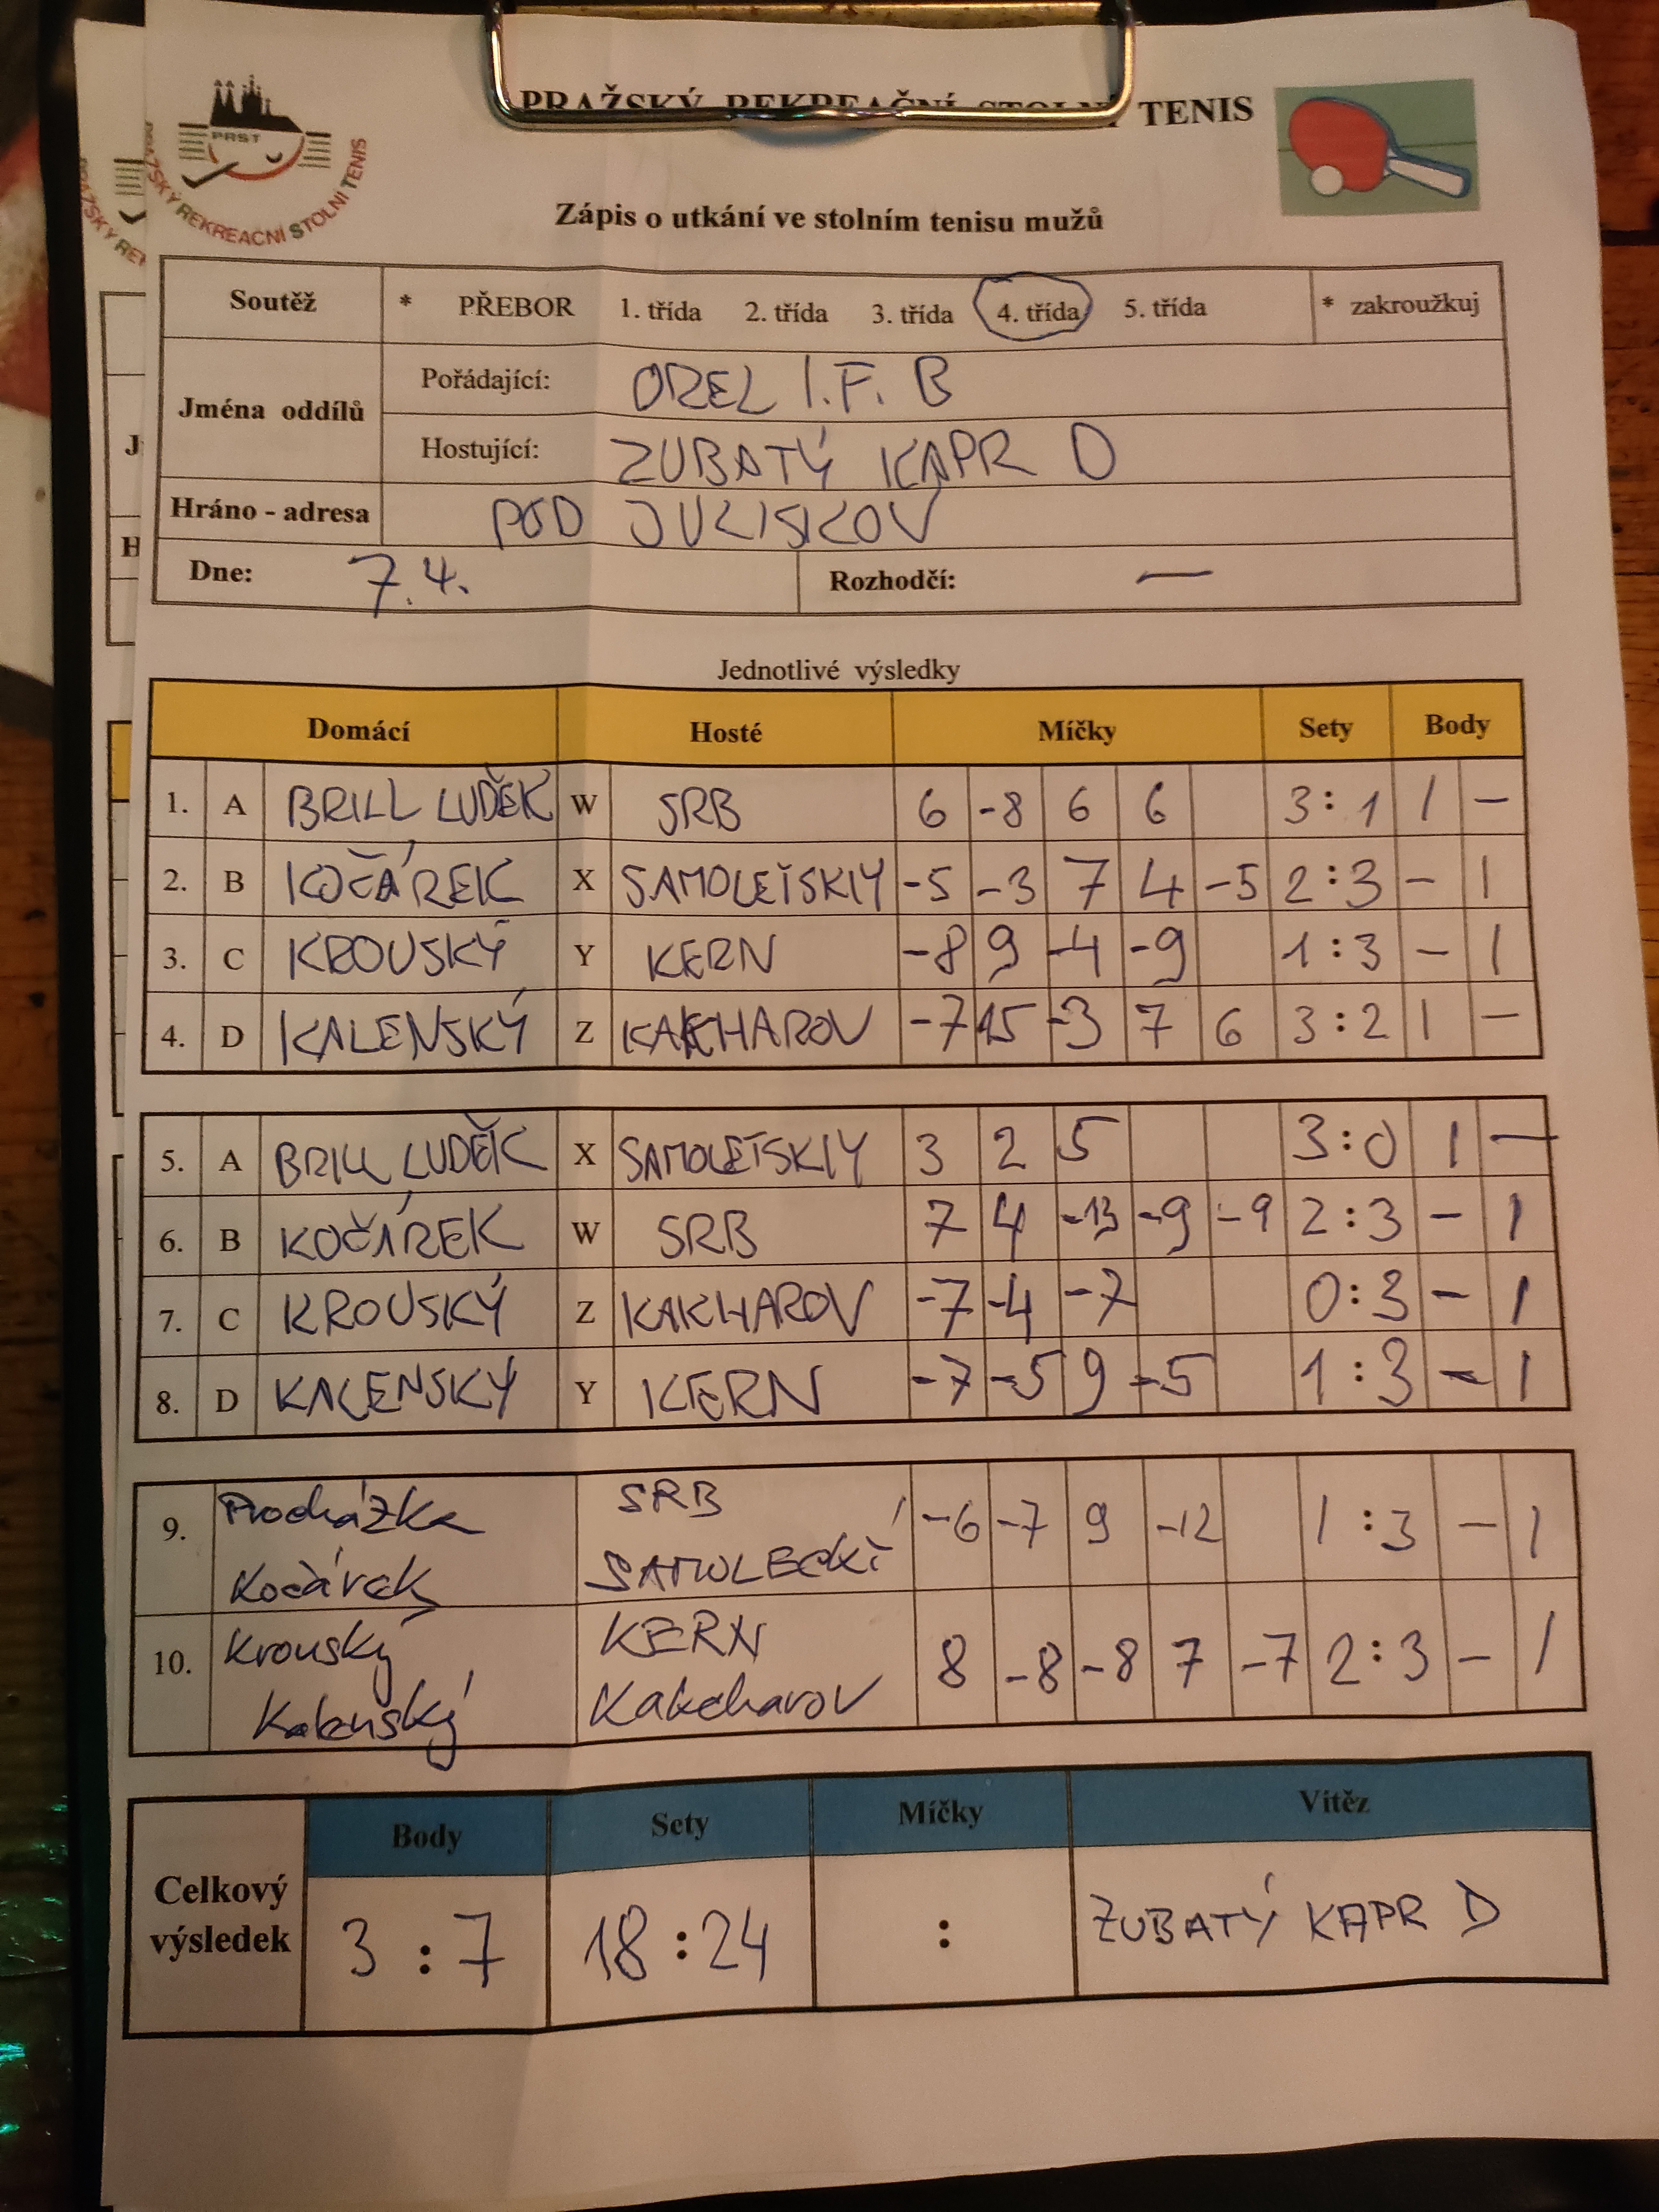 PRAŽSKÝ REKREAČNÍ STOLNÍ TENIS
PRST
PRAŽSKÝ REKREAČNÍ STOLNÍ TENIS
Zápis o utkání ve stolním tenisu mužů
Soutěž * PŘEBOR 1. třída 2. třída 3. třída 4. třída 5. třída * zakroužkuj
Jména oddílů
Pořádající: OREL I.F. B
Hostující: ZUBATÝ KAPR D
Hráno - adresa POD JULISKOV
Dne: 7.4. Rozhodčí: —
Jednotlivé výsledky
Domácí Hosté Míčky Sety Body
1. A BRILL LUDĚK W SRB 6 -8 6 6 3:1 1 -
2. B KOČÁREK X SAMOLEŤSKIY -5 -3 7 4 -5 2:3 - 1
3. C KROUSKÝ Y KERN -8 9 -4 -9 1:3 - 1
4. D KALENSKÝ Z KAKHAROV -7 15 -3 7 6 3:2 1 -
5. A BRILL LUDĚK X SAMOLETSKIY 3 2 5 3:0 1 -
6. B KOČÁREK W SRB 7 4 -13 -9 -9 2:3 - 1
7. C KROUSKÝ Z KAKHAROV -7 -4 -7 0:3 - 1
8. D KALENSKÝ Y KERN -7 -5 9 -5 1:3 - 1
9. Procházka SRB -6 -7 9 -12 1:3 - 1
Kočárek SAMOLECKÍ
10. Krouský KERN 8 -8 -8 7 -7 2:3 - 1
Kalenský Kakcharov
Body Sety Míčky Vítěz
Celkový výsledek 3:7 18:24 : ZUBATÝ KAPR D